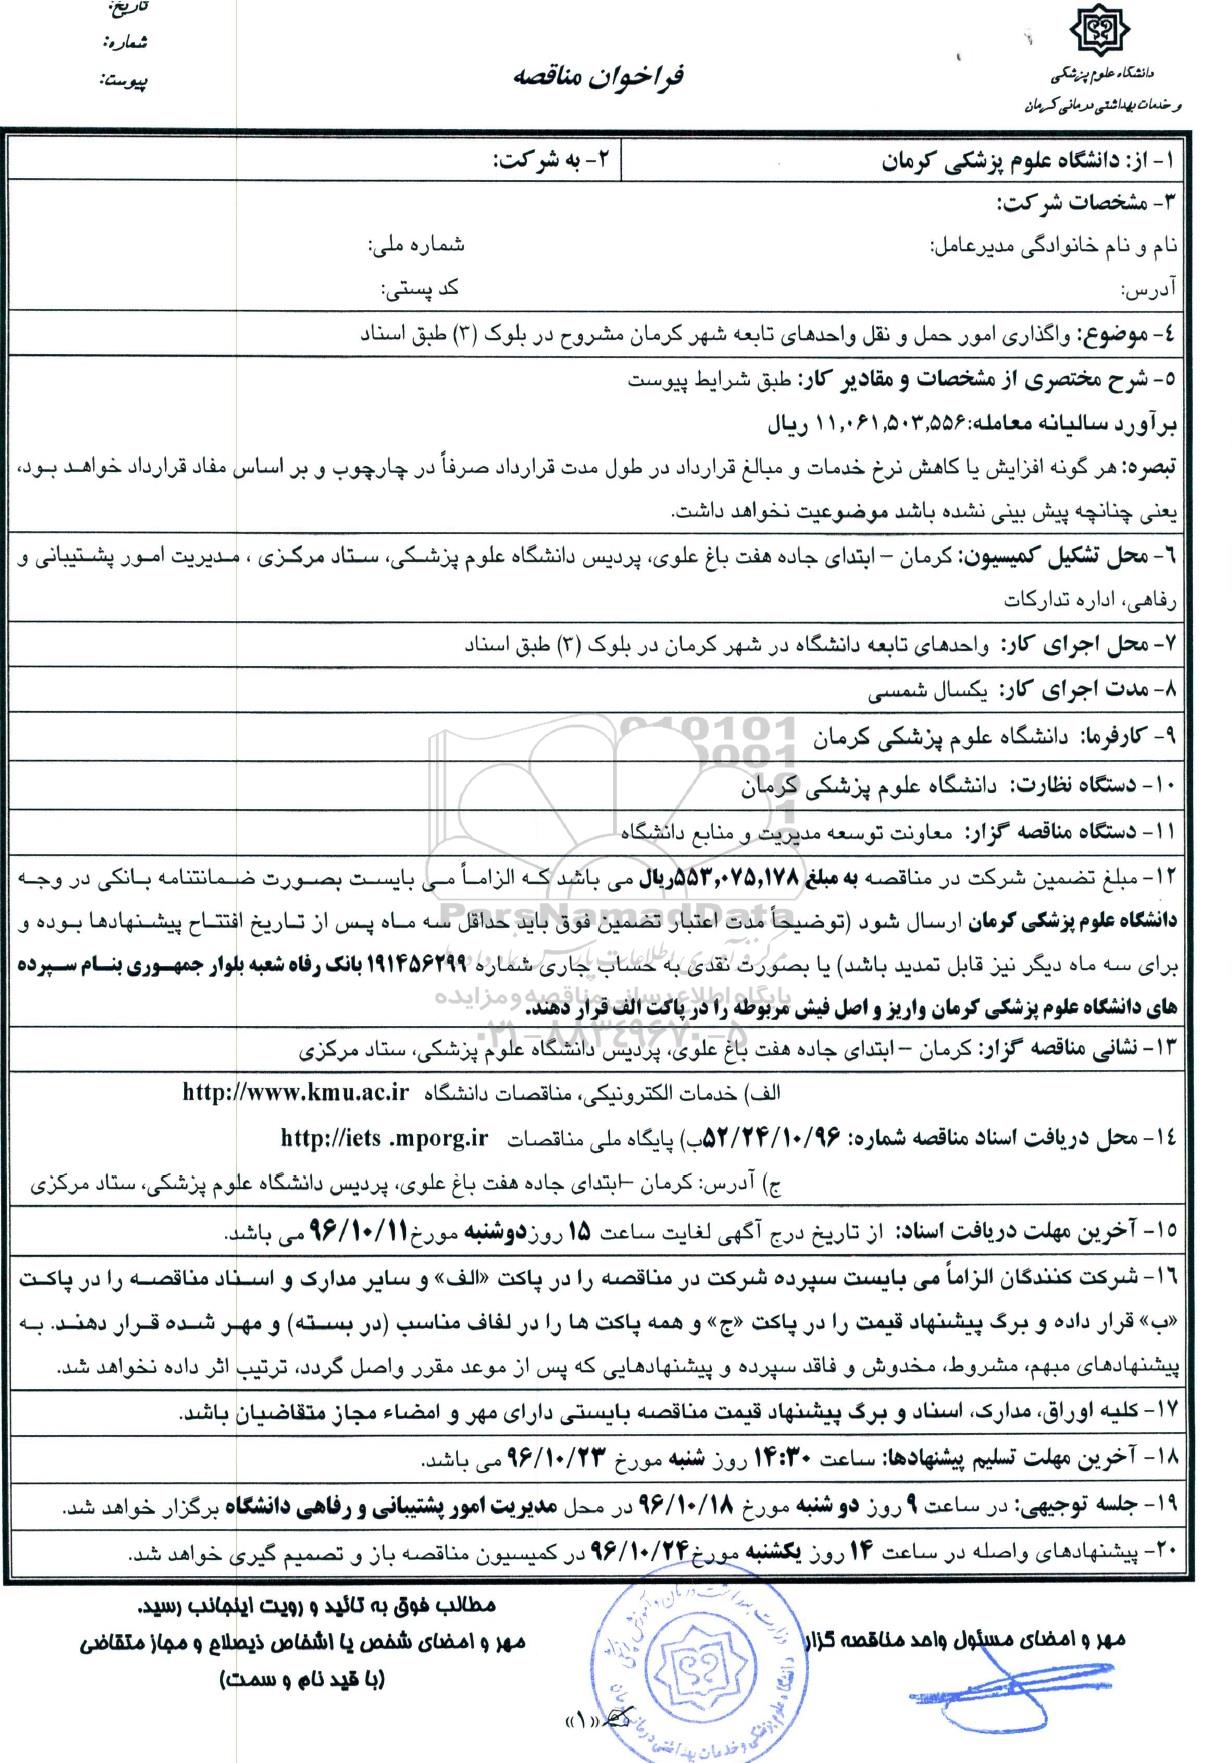 دانشگاه علوم پزشکی
و خدمات بهداشتی درمانی کرمان
فراخوان مناقصه
تاریخ:
شماره:
پیوست:
۱- از: دانشگاه علوم پزشکی کرمان
۲- به شرکت:
۳- مشخصات شرکت:
نام و نام خانوادگی مدیرعامل: شماره ملی:
آدرس: کد پستی:
۴- موضوع: واگذاری امور حمل و نقل واحدهای تابعه شهر کرمان مشروح در بلوک (۳) طبق اسناد
۵- شرح مختصری از مشخصات و مقادیر کار: طبق شرایط پیوست
برآورد سالیانه معامله:۱۱,۰۶۱,۵۰۳,۵۵۶ ریال
تبصره: هر گونه افزایش یا کاهش نرخ خدمات و مبالغ قرارداد در طول مدت قرارداد صرفاً در چارچوب و بر اساس مفاد قرارداد خواهد بود،
یعنی چنانچه پیش بینی نشده باشد موضوعیت نخواهد داشت.
۶- محل تشکیل کمیسیون: کرمان – ابتدای جاده هفت باغ علوی، پردیس دانشگاه علوم پزشکی، ستاد مرکزی ، مدیریت امور پشتیبانی و
رفاهی، اداره تدارکات
۷- محل اجرای کار: واحدهای تابعه دانشگاه در شهر کرمان در بلوک (۳) طبق اسناد
۸- مدت اجرای کار: یکسال شمسی
۹- کارفرما: دانشگاه علوم پزشکی کرمان
۱۰- دستگاه نظارت: دانشگاه علوم پزشکی کرمان
۱۱- دستگاه مناقصه گزار: معاونت توسعه مدیریت و منابع دانشگاه
۱۲- مبلغ تضمین شرکت در مناقصه به مبلغ ۵۵۳,۰۷۵,۱۷۸ریال می باشد که الزاماً می بایست بصورت ضمانتنامه بانکی در وجه
دانشگاه علوم پزشکی کرمان ارسال شود (توضیحاً مدت اعتبار تضمین فوق باید حداقل سه ماه پس از تاریخ افتتاح پیشنهادها بوده و
برای سه ماه دیگر نیز قابل تمدید باشد) یا بصورت نقدی به حساب جاری شماره ۱۹۱۴۵۶۲۹۹ بانک رفاه شعبه بلوار جمهوری بنام سپرده
های دانشگاه علوم پزشکی کرمان واریز و اصل فیش مربوطه را در پاکت الف قرار دهند.
ParsNamadData
پایگاه اطلاع رسانی مناقصه و مزایده
۰۲۱-۸۸۳۴۹۶۷۰-۵
۱۳- نشانی مناقصه گزار: کرمان – ابتدای جاده هفت باغ علوی، پردیس دانشگاه علوم پزشکی، ستاد مرکزی
الف) خدمات الکترونیکی، مناقصات دانشگاه http://www.kmu.ac.ir
۱۴- محل دریافت اسناد مناقصه شماره: ۵۲/۲۴/۱۰/۹۶ب) پایگاه ملی مناقصات http://iets .mporg.ir
ج) آدرس: کرمان –ابتدای جاده هفت باغ علوی، پردیس دانشگاه علوم پزشکی، ستاد مرکزی
۱۵- آخرین مهلت دریافت اسناد: از تاریخ درج آگهی لغایت ساعت ۱۵ روزدوشنبه مورخ۹۶/۱۰/۱۱می باشد.
۱۶- شرکت کنندگان الزاماً می بایست سپرده شرکت در مناقصه را در پاکت «الف» و سایر مدارک و اسناد مناقصه را در پاکت
«ب» قرار داده و برگ پیشنهاد قیمت را در پاکت «ج» و همه پاکت ها را در لفاف مناسب (در بسته) و مهر شده قرار دهند. به
پیشنهادهای مبهم، مشروط، مخدوش و فاقد سپرده و پیشنهادهایی که پس از موعد مقرر واصل گردد، ترتیب اثر داده نخواهد شد.
۱۷- کلیه اوراق، مدارک، اسناد و برگ پیشنهاد قیمت مناقصه بایستی دارای مهر و امضاء مجاز متقاضیان باشد.
۱۸- آخرین مهلت تسلیم پیشنهادها: ساعت ۱۴:۳۰ روز شنبه مورخ ۹۶/۱۰/۲۳ می باشد.
۱۹- جلسه توجیهی: در ساعت ۹ روز دو شنبه مورخ ۹۶/۱۰/۱۸ در محل مدیریت امور پشتیبانی و رفاهی دانشگاه برگزار خواهد شد.
۲۰- پیشنهادهای واصله در ساعت ۱۴ روز یکشنبه مورخ۹۶/۱۰/۲۴ در کمیسیون مناقصه باز و تصمیم گیری خواهد شد.
مهر و امضای مسئول واحد مناقصه گزار
مطالب فوق به تائید و رویت اینجانب رسید.
مهر و امضای شخص یا اشخاص ذیصلاح و مجاز متقاضی
(با قید نام و سمت)
«۱»